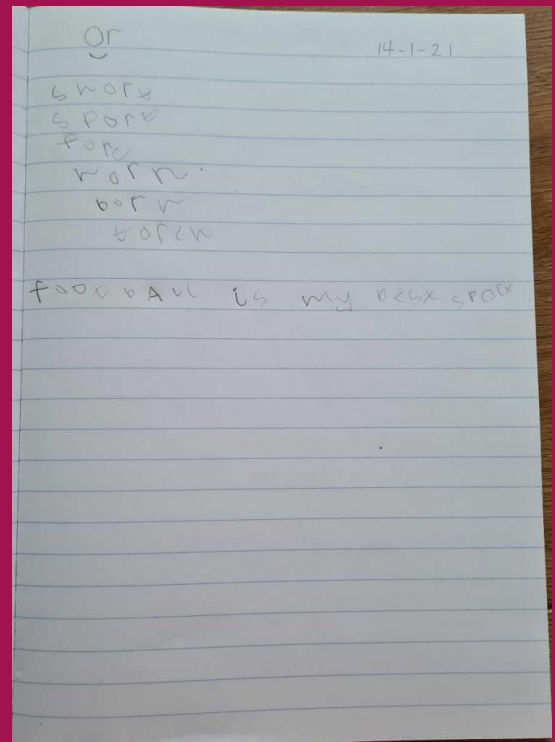 or
14-1-21
short
sport
horn
born
torch
football is my best sport